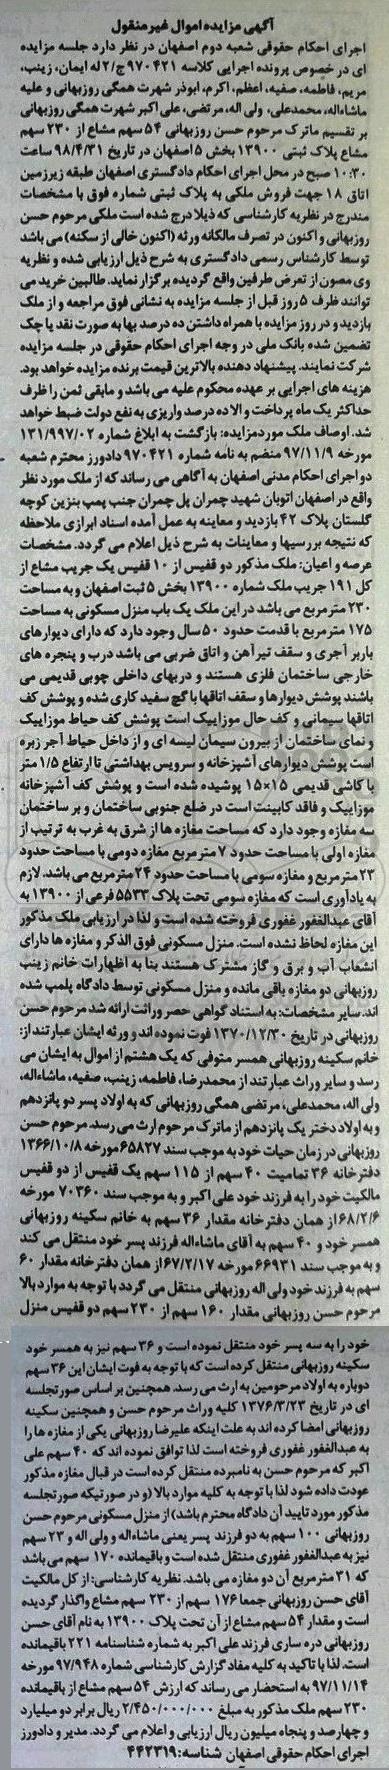 آگهی مزایده اموال غیر منقول
اجرای احکام حقوقی شعبه دوم اصفهان در نظر دارد جلسه مزایده
ای در خصوص پرونده اجرایی کلاسه ۹۷۰۴۲۱ج/۲ له ایمان، زینب،
مریم، فاطمه، صفیه، اعظم، اکرم، ابوذر شهرت همگی روزبهانی و علیه
ماشاءاله، محمدعلی، ولی اله، مرتضی، علی اکبر شهرت همگی روزبهانی
بر تقسیم ماترک مرحوم حسن روزبهانی ۵۴ سهم مشاع از ۲۳۰ سهم
مشاع پلاک ثبتی ۱۳۹۰۰ بخش ۵ اصفهان در تاریخ ۹۸/۴/۳۱ ساعت
۱۰:۳۰ صبح در محل اجرای احکام دادگستری اصفهان طبقه زیرزمین
اتاق ۱۸ جهت فروش ملکی به پلاک ثبتی شماره فوق با مشخصات
مندرج در نظریه کارشناسی که ذیلا درج شده است ملکی مرحوم حسن
روزبهانی و اکنون در تصرف مالکانه ورثه (اکنون خالی از سکنه) می باشد
توسط کارشناس رسمی دادگستری به شرح ذیل ارزیابی شده و نظریه
وی مصون از تعرض طرفین واقع گردیده برگزار نماید. طالبین خرید می
توانند ظرف ۵ روز قبل از جلسه مزایده به نشانی فوق مراجعه و از ملک
بازدید و در روز مزایده با همراه داشتن ده درصد بها به صورت نقد یا چک
تضمین شده بانک ملی در وجه اجرای احکام حقوقی در جلسه مزایده
شرکت نمایند. پیشنهاد دهنده بالاترین قیمت برنده مزایده خواهد بود.
هزینه های اجرایی بر عهده محکوم علیه می باشد و مابقی ثمن را ظرف
حداکثر یک ماه پرداخت و الا ده درصد واریزی به نفع دولت ضبط خواهد
شد. اوصاف ملک مورد مزایده: بازگشت به ابلاغ شماره ۱۳۱/۹۹۷/۰۲
مورخه ۹۷/۱۱/۹ منضم به نامه شماره ۹۷۰۴۲۱ دادورز محترم شعبه
دو اجرای احکام مدنی اصفهان به آگاهی می رساند که از ملک مورد نظر
واقع در اصفهان اتوبان شهید چمران پل چمران جنب پمپ بنزین کوچه
گلستان پلاک ۴۲ بازدید و معاینه به عمل آمده اسناد ابرازی ملاحظه
که نتیجه بررسیها و معاینات به شرح ذیل اعلام می گردد. مشخصات
عرصه و اعیان: ملک مذکور دو قفیس از ۱۰ قفیس یک جریب مشاع از
کل ۱۹۱ جریب ملک شماره ۱۳۹۰۰ بخش ۵ ثبت اصفهان و به مساحت
۲۳۰ متر مربع می باشد در این ملک یک باب منزل مسکونی به مساحت
۱۷۵ متر مربع با قدمت حدود ۵۰ سال وجود دارد که دارای دیوارهای
باربر آجری و سقف تیر آهن و اتاق ضربی می باشد درب و پنجره های
خارجی ساختمان فلزی هستند و دربهای داخلی چوبی قدیمی می
باشند پوشش دیوارها و سقف اتاقها با گچ سفید کاری شده و پوشش کف
اتاقها سیمانی و کف حال موزاییک است پوشش کف حیاط موزاییک
و نمای ساختمان از بیرون سیمان لیسه ای و از داخل حیاط آجر زبره
است پوشش دیوارهای آشپزخانه و سرویس بهداشتی تا ارتفاع ۱/۵ متر
با کاشی قدیمی ۱۵×۱۵ پوشیده شده است و پوشش کف آشپزخانه
موزاییک و فاقد کابینت است در ضلع جنوبی ساختمان و بر ساختمان
سه مغازه وجود دارد که مساحت مغازه ها از شرق به غرب به ترتیب از
مغازه اولی با مساحت حدود ۷ متر مربع مغازه دومی با مساحت حدود
۲۳ متر مربع و مغازه سومی با مساحت حدود ۲۴ متر مربع می باشد. لازم
به یادآوری است که مغازه سومی تحت پلاک ۵۵۳۳ فرعی از ۱۳۹۰۰ به
آقای عبدالغفور غفوری فروخته شده است و لذا در ارزیابی ملک مذکور
این مغازه لحاظ نشده است. منزل مسکونی فوق الذکر و مغازه ها دارای
انشعاب آب و برق و گاز مشترک هستند بنا به اظهارات خانم زینب
روزبهانی دو مغازه باقی مانده و منزل مسکونی توسط دادگاه پلمپ شده
اند. سایر مشخصات: به استناد گواهی حصر وراثت ارائه شد مرحوم حسن
روزبهانی در تاریخ ۱۳۷۰/۱۲/۳۰ فوت نموده اند و ورثه ایشان عبارتند از:
خانم سکینه روزبهانی همسر متوفی که یک هشتم از اموال به ایشان می
رسد و سایر وراث عبارتند از محمدرضا، فاطمه، زینب، صفیه، ماشاءاله،
ولی اله، محمدعلی، مرتضی همگی روزبهانی که به اولاد پسر دو پانزدهم
و به اولاد دختر یک پانزدهم از ماترک مرحوم ارث می رسد. مرحوم حسن
روزبهانی در زمان حیات خود به موجب سند ۶۵۸۲۷ مورخه ۱۳۶۶/۱۰/۸
دفترخانه ۳۶ تمامیت ۴۰ سهم از ۱۱۵ سهم یک قفیس از دو قفیس
مالکیت خود را به فرزند خود علی اکبر و به موجب سند ۷۰۳۶۰ مورخه
۶۸/۲/۶ از همان دفترخانه مقدار ۳۶ سهم به خانم سکینه روزبهانی
همسر خود و ۴۰ سهم به آقای ماشاءاله فرزند پسر خود منتقل می کند
و به موجب سند ۶۶۹۳۱ مورخه ۶۷/۲/۱۷ از همان دفترخانه مقدار ۶۰
سهم به فرزند خود ولی اله روزبهانی منتقل می گردد با توجه به موارد بالا
مرحوم حسن روزبهانی مقدار ۱۶۰ سهم از ۲۳۰ سهم دو قفیس منزل
خود را به سه پسر خود منتقل نموده است و ۳۶ سهم نیز به همسر خود
سکینه روزبهانی منتقل کرده است که با توجه به فوت ایشان این ۳۶ سهم
دوباره به اولاد مرحومین به ارث می رسد. همچنین بر اساس صورتجلسه
ای در تاریخ ۱۳۷۶/۳/۲۳ کلیه وراث مرحوم حسن و همچنین سکینه
روزبهانی امضا کرده اند به علت اینکه علیرضا روزبهانی یکی از مغازه ها را
به عبدالغفور غفوری فروخته است لذا توافق نموده اند که ۴۰ سهم علی
اکبر که مرحوم حسن به نامبرده منتقل کرده است در قبال مغازه مذکور
عودت داده شود لذا با توجه به کلیه موارد بالا (و در صورتیکه صورتجلسه
مذکور مورد تایید آن دادگاه محترم باشد) از منزل مسکونی مرحوم حسن
روزبهانی ۱۰۰ سهم به دو فرزند پسر یعنی ماشاءاله و ولی اله و ۲۳ سهم
نیز به عبدالغفور غفوری منتقل شده است و باقیمانده ۱۷۰ سهم می باشد
که ۳۱ متر مربع آن دو مغازه می باشد. نظریه کارشناسی: از کل مالکیت
آقای حسن روزبهانی جمعا ۱۷۶ سهم از ۲۳۰ سهم مشاع واگذار گردیده
است و مقدار ۵۴ سهم مشاع از آن تحت پلاک ۱۳۹۰۰ به نام آقای حسن
روزبهانی دره ساری فرزند علی اکبر به شماره شناسنامه ۲۲۱ باقیمانده
است. لذا با تاکید به کلیه مفاد گزارش کارشناسی شماره ۹۷/۹۴۸ مورخه
۹۷/۱۱/۱۴ به استحضار می رساند که ارزش ۵۴ سهم مشاع از باقیمانده
۲۳۰ سهم ملک مذکور به مبلغ ۲/۴۵۰/۰۰۰/۰۰۰ ریال برابر دو میلیارد
و چهارصد و پنجاه میلیون ریال ارزیابی و اعلام می گردد. مدیر و دادورز
اجرای احکام حقوقی اصفهان شناسه: ۴۴۲۳۱۹